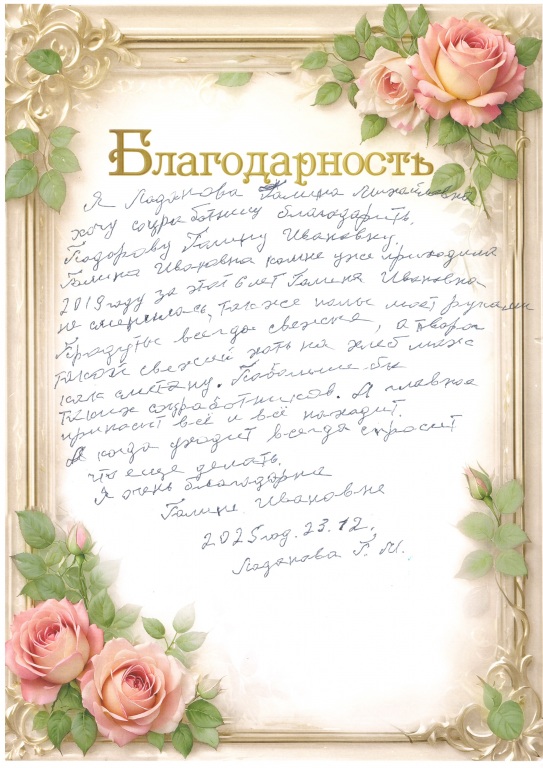 Благодарность
Я Ладанова Галина Михайловна
хочу соцработницу благодарить.
Тодорову Галину Ивановну.
Галина Ивановна комне уже приходила
2019 году за этот 6 лет Галина Ивановна
не сменилась, также полы моет руками
Продукты всегда свежие, а творог
такой свежий хоть на хлеб мажь
как сметану. Побольше бы
таких соцработников. А главное
принасит всё и всё находит.
А когда уходит всегда спросит
что еще делать.
Я очень благодарна
Галине Ивановне
2025 год. 23.12.
Ладанова Г. М.